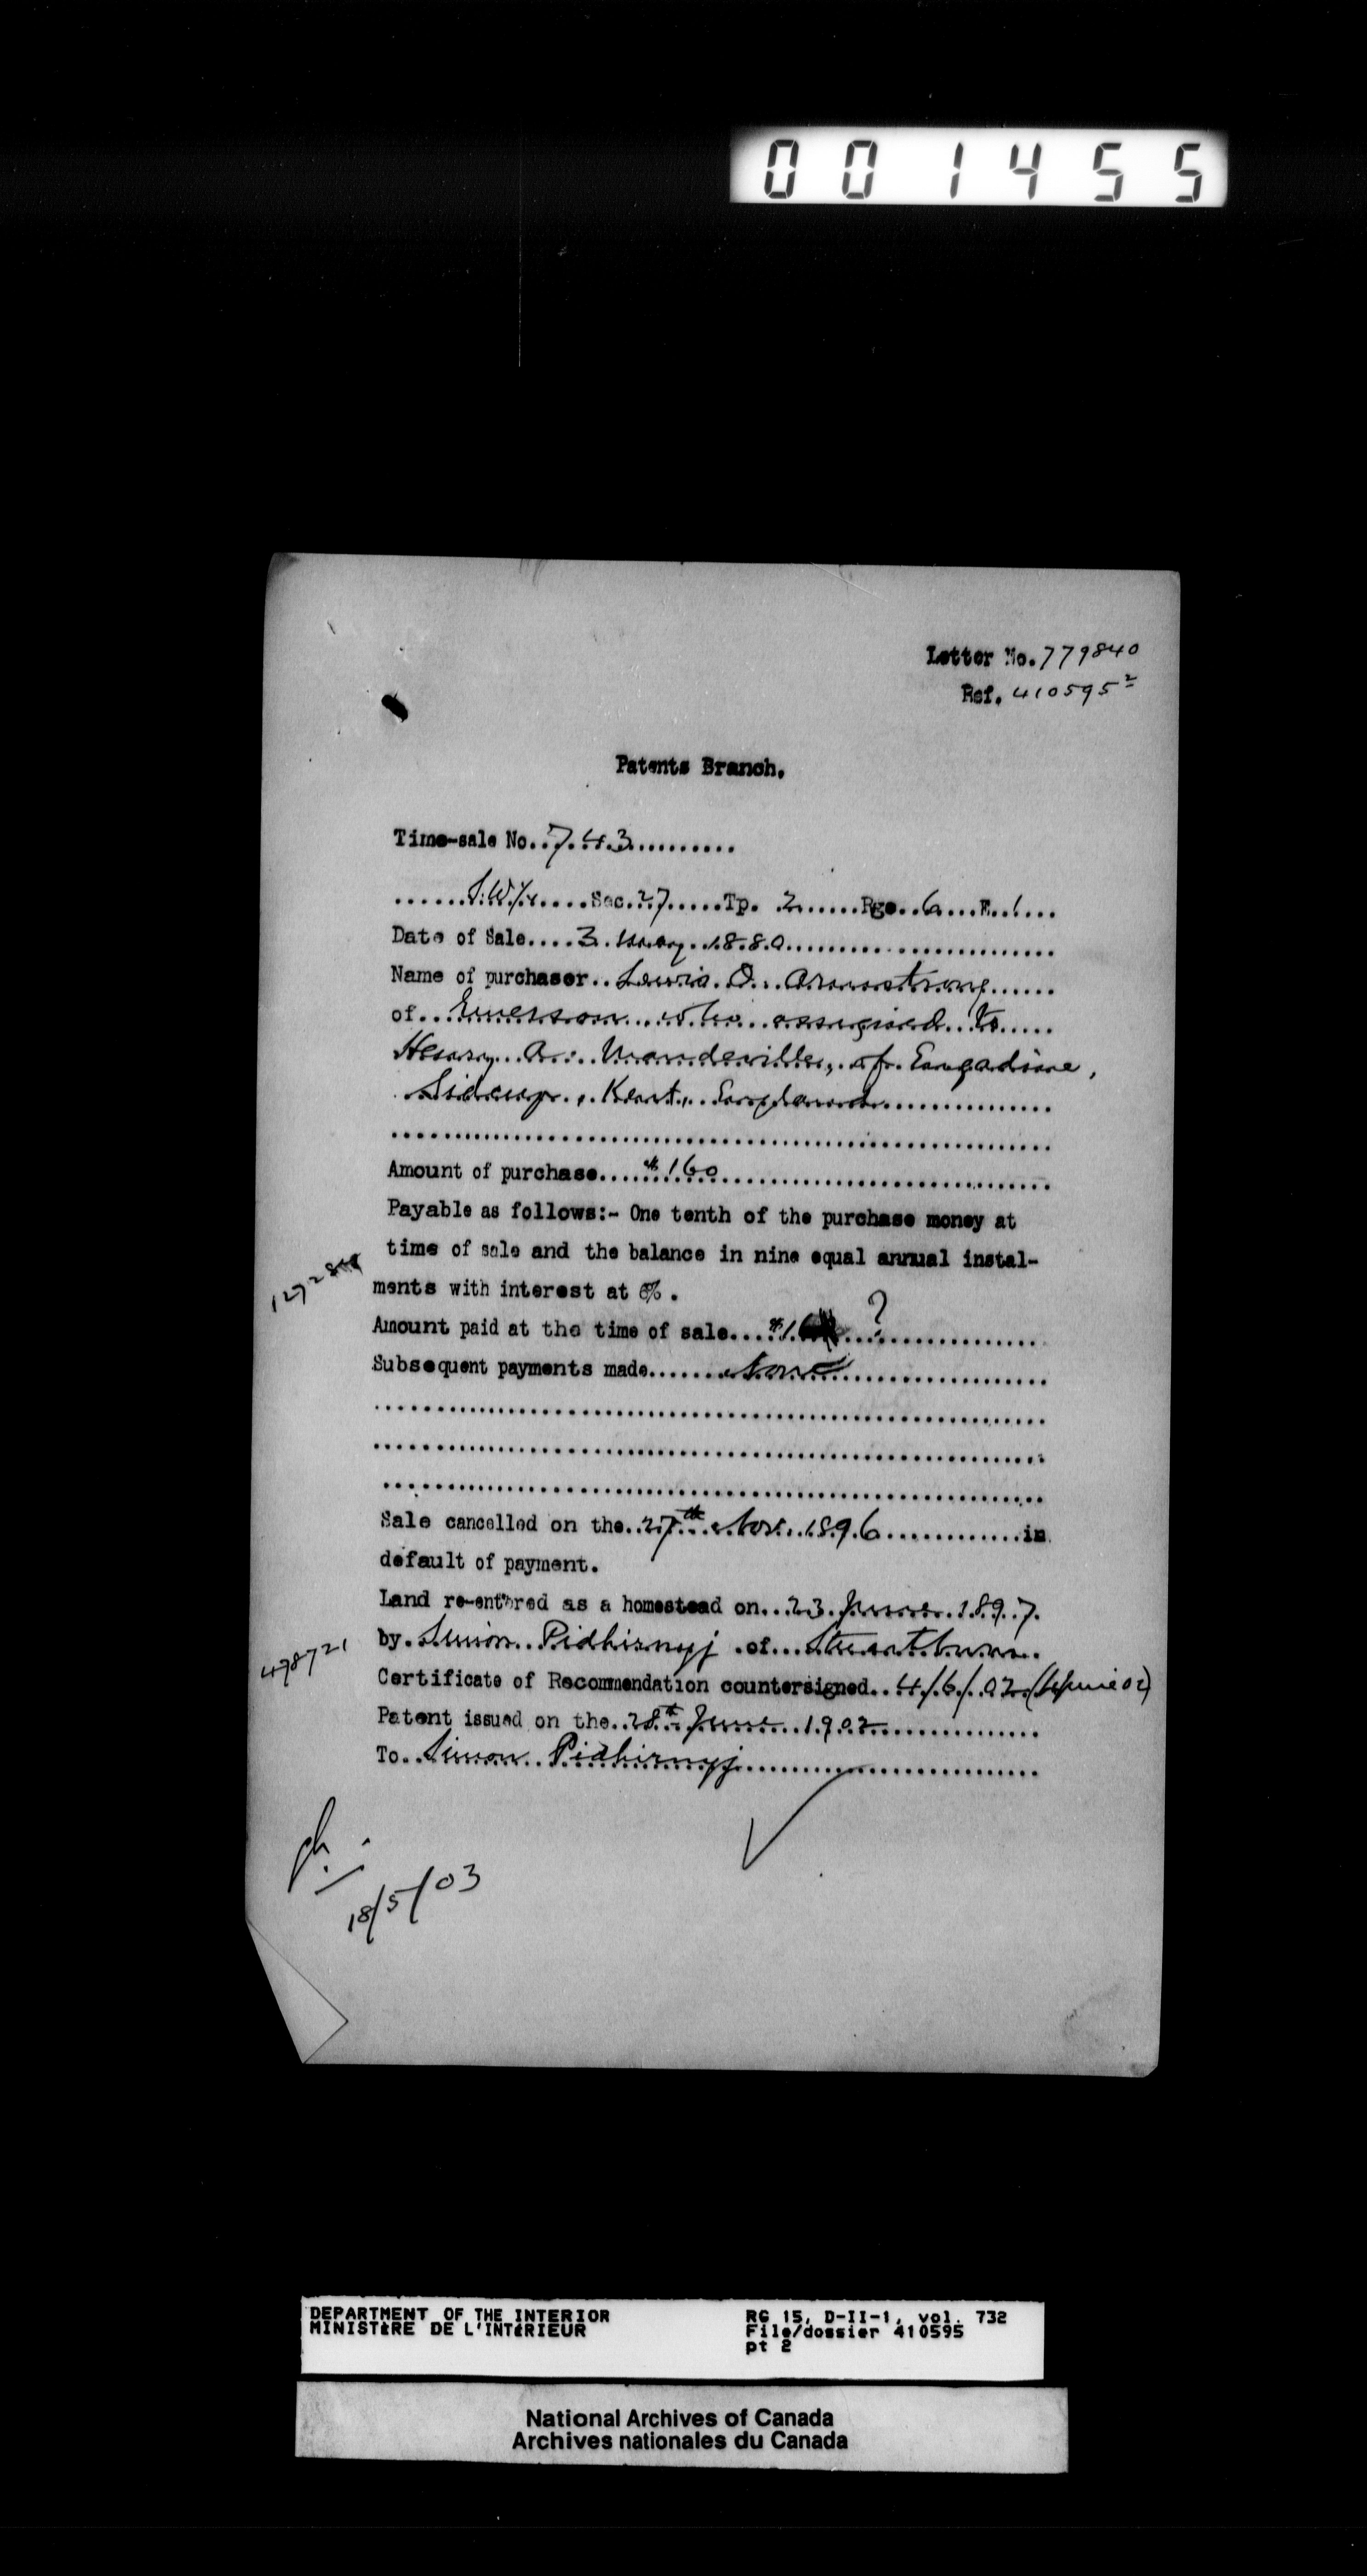 001455
Letter No. 779840
Ref. 410595 2
Patents Branch.
Time-sale No..743..........
......S.W.¼....Sec.27.....Tp. 2......Rge..6...E.1...
Date of Sale....3 May 1880..........................
Name of purchaser..Lewis O. Armstrong......
of...Emerson who assigned to.....
Henry A. Mandeville, of Engadine,
Sidcup, Kent, England...............
Amount of purchase....$160..............................
Payable as follows:- One tenth of the purchase money at
time of sale and the balance in nine equal annual instal-
1272844
ments with interest at 6%.
Amount paid at the time of sale....$1 ?..............
Subsequent payments made.......None...................
Sale cancelled on the..27th Nov. 1896.............in
default of payment.
Land re-entered as a homestead on...23 June 1897.
478721
by.Simon Pidhirnyj.of...Stuartburn..
Certificate of Recommendation countersigned..4/6/02 (4 June 02)
Patent issued on the..28th June 1902...............
To..Simon Pidhirnyj...........................
18/5/03
DEPARTMENT OF THE INTERIOR
MINISTÈRE DE L'INTÉRIEUR
RG 15, D-II-1, vol. 732
File/dossier 410595
pt 2
National Archives of Canada
Archives nationales du Canada